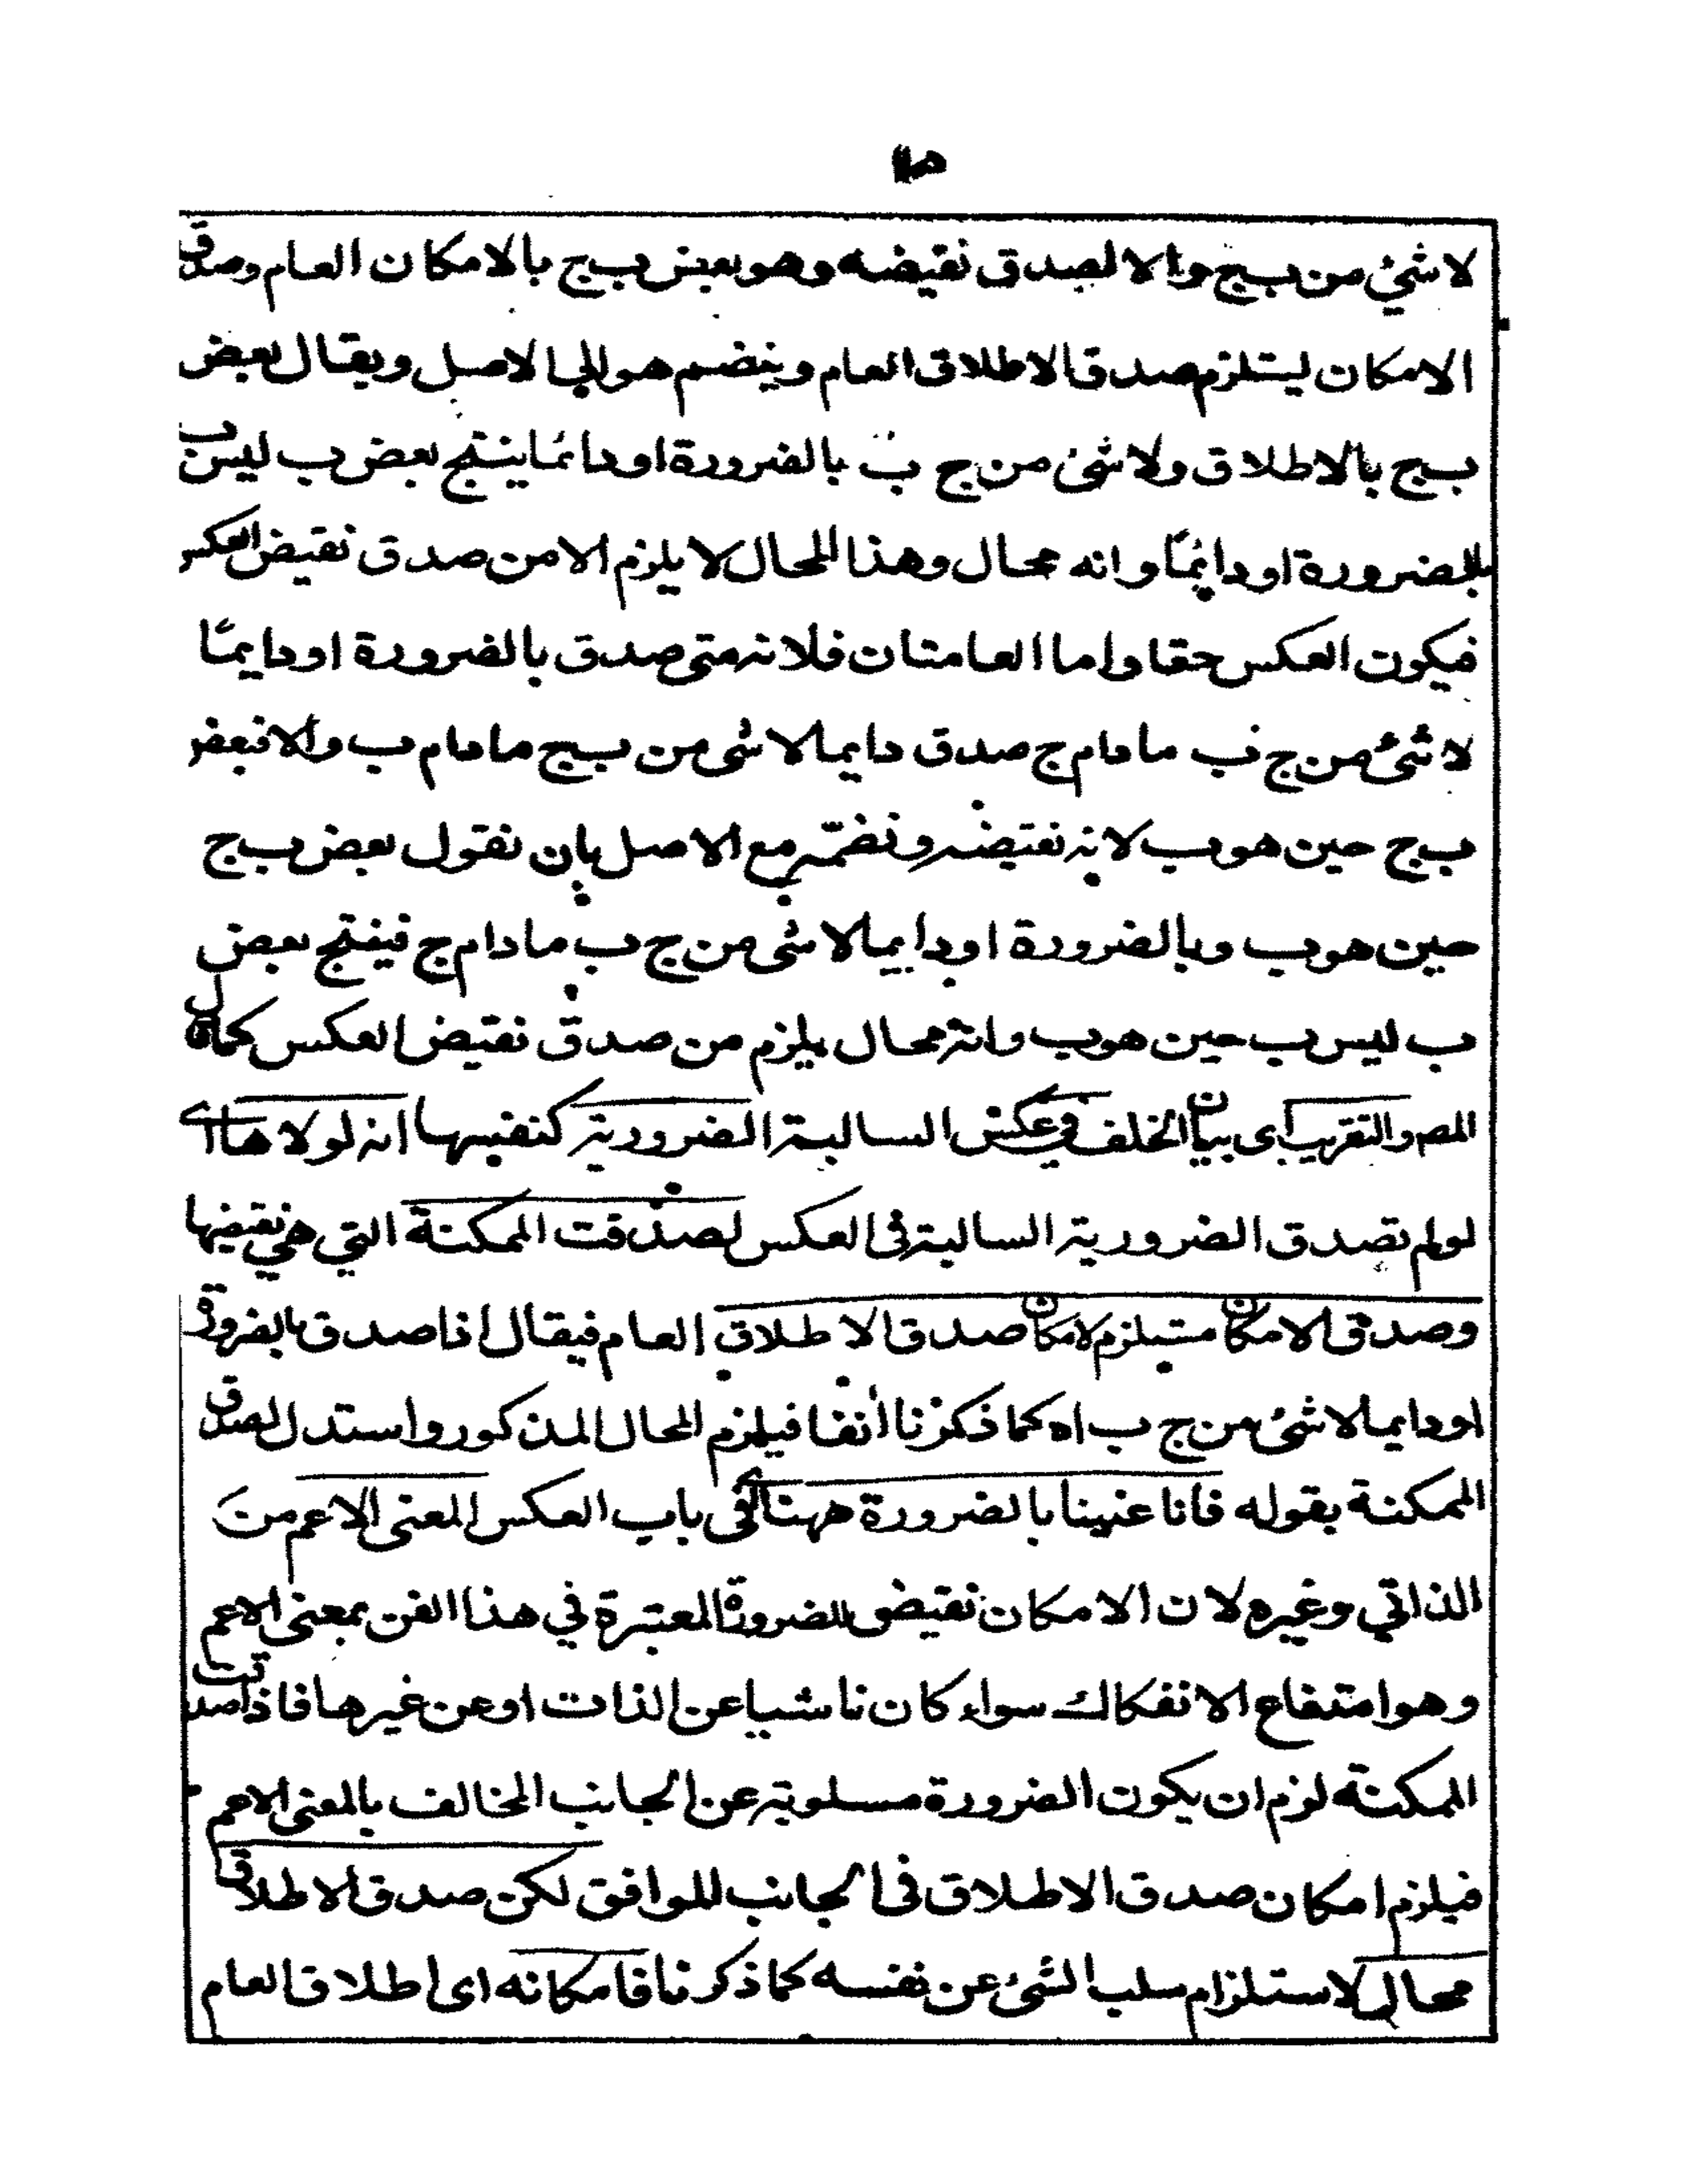 لا شئ من ب ج والا لصدق نقيضه وهو بعض ب ج بالامكان العام وصدق
الامكان ليستلزم صدق الاطلاق العام وينضم هو الي الاصل ويقال بعض
ب ج بالاطلاق ولا شئ من ج ب بالضرورة او دائما ينتج بعض ب ليس ب
بالضرورة او دايمًا وانه محال وهذا المحال لا يلزم الا من صدق نقيض العكس
فيكون العكس حقا واما العامتان فلانه متى صدق بالضرورة او دايمًا
لا شئ من ج ب مادام ج صدق دايما لا شى من ب ج مادام ب والا فبعض
ب ج حين هو ب لانه نقيضه ونضمّه مع الاصل بان نقول بعض ب ج
حين هو ب وبالضرورة او دايما لا شى من ج ب مادام ج فينتج بعض
ب ليس ب حين هو ب وانه محال يلزم من صدق نقيض العكس كما قال
المص والتقريب اى بيان الخلف في عكس السالبة الضرورية كنفسها انه لولاها اى
لو لم تصدق الضرورية السالبة فى العكس لصدقت الممكنة التي هي نقيضها
وصدق الامكان مستلزم لامكان صدق الاطلاق العام فيقال اذا صدق بالضرورة
او دايما لا شئ من ج ب اه كما ذكرنا انفا فيلزم المحال المذكور واستدل لصدق
الممكنة بقوله فانا عنينا بالضرورة ههنا اى فى باب العكس المعنى الاعم من
الذاتي وغيره لان الامكان نقيض للضرورة المعتبرة في هذا الفن بمعنى الاعم
وهو امتناع الانفكاك سواء كان ناشيا عن الذات او عن غيرها فاذا صدقت
الممكنة لزم ان يكون الضرورة مسلوبة عن الجانب المخالف بالمعنى الاعم
فيلزم امكان صدق الاطلاق فى الجانب الموافق لكن صدق الاطلاق
محال لاستلزام سلب الشئ عن نفسه كما ذكرنا فامكانه اى اطلاق العام